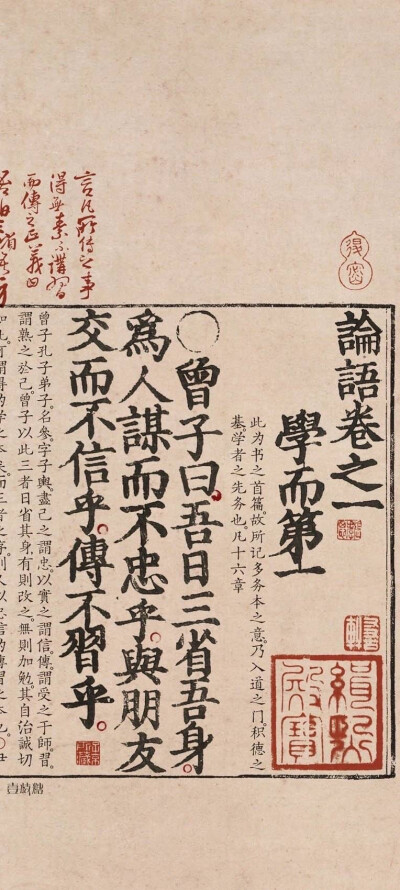 論語卷之一
學而第一
此为书之首篇。故所记多务本之意。乃入道之门。积德之
基。学者之先务也。凡十六章
緝熙
殿寶
○曾子曰吾日三省吾身。
為人謀而不忠乎。與朋友
交而不信乎。傳不習乎。
曾子孔子弟子。名參。字子輿。盡己之謂忠。以實之謂信。傳謂受之于師。習
謂熟之於己。曾子以此三者日省其身。有則改之。無則加勉。其自治誠切
言凡所傳之事
得無素不講習
而傳之正義曰